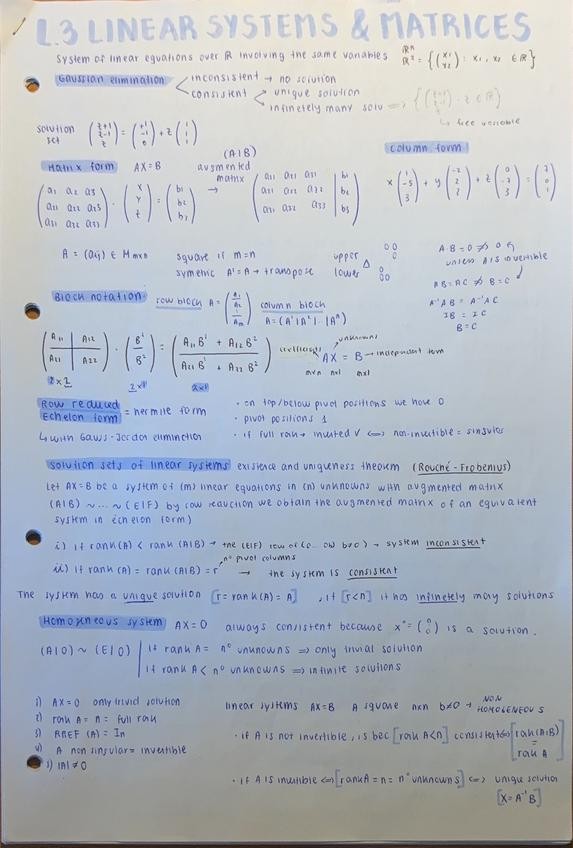 L.3 LINEAR SYSTEMS & MATRICES
System of linear equations over ℝ involving the same variables ℝⁿ ℝ² = {(x₁ x₂) : x₁, x₂ ∈ ℝ}
Gaussian elimination inconsistent → no solution
consistent unique solution
infinetely many solu ⟹ {( z+1 z-1 z ) · z ∈ ℝ}
↳ free variable
solution set (z+1 z-1 z) = (+1 -1 0) + z (1 1 1)
Matrix form AX=B augmented matrix (A|B)
column form
(a₁ a₂ a₃ a₁₁ a₂₂ a₂₃ a₃₁ a₃₂ a₃₃) · (x y z) = (b₁ b₂ b₃) →
x (1 -5 3) + y (-2 2 2) + z (0 -7 3) = (7 0 1)
A = (aij) ∈ Mmxn square if m=n
symetric Aᵗ = A → transpose
upper
lower △
AB=0 ⇏ 0
unless A is invertible
AB = AC ⇏ B = C
A⁻¹AB = A⁻¹AC
IB = IC
B=C
Block notation: row block A = (A₁ A₂ Am) column block
A = (A¹|A²|..|Aⁿ)
(A₁₁ A₁₂ A₂₁ A₂₂) · (B¹ B²) = (A₁₁B¹ + A₁₂B² A₂₁B¹ + A₂₂B²)
2x2 2x1 2x1
coefficients unknowns
AX = B → independent term
mxn nx1 mx1
Row reduced Echelon form = hermite form
· on top/below pivot positions we have 0
· pivot positions 1
↳ with Gauss-Jordan elimination
· if full rank → inverted ✓ ⟺ non-invertible = singular
solution sets of linear systems existence and uniqueness theorem (Rouché-Frobenius)
Let AX=B be a system of (m) linear equations in (n) unknowns with augmented matrix
(A|B) ~ ... ~ (E|F) by row reduction we obtain the augmented matrix of an equivalent
system in echelon form)
i) if rank(A) < rank(A|B) → the (E|F) row of (0... 0|b≠0) → system inconsistent
nº pivot columns
ii) if rank(A) = rank(A|B) = r → the system is consistent
The system has a unique solution [r = rank(A) = A] , if [r<n] it has infinetely many solutions
Homogneous system AX=0 always consistent because x° = (0 0) is a solution.
(A|0) ~ (E|0) if rank A = nº unknowns ⟹ only trivial solution
if rank A < nº unknowns ⟹ infinite solutions
i) AX=0 only trivial solution
2) rank A = n = full rank
3) RREF (A) = In
4) A non singular = invertible
5) |A| ≠ 0
linear systems AX=B A square nxn b≠0 → NON HOMOGENEOUS
· if A is not invertible, is bec [rank A<n] consistent ⟺ [rank(A|B) = rank A]
· if A is invertible ⟺ [rank A = n = nº unknowns] ⟺ unique solution
[X = A⁻¹B]